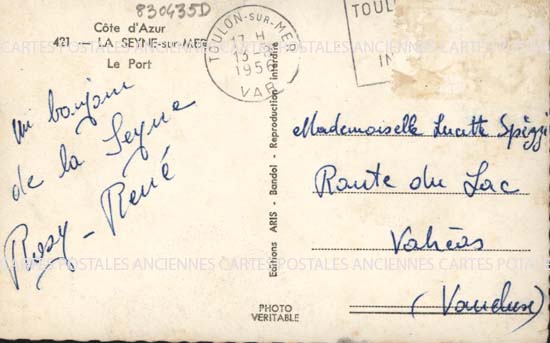 830435D
Côte d'Azur
421 — LA SEYNE-sur-MER
Le Port
TOULON-SUR-MER
17 H
13
1956
VAR
TOUL
IN
un bonjour
de la Seyne
Rosy - René
Editions ARIS - Bandol - Reproduction interdite
Mademoiselle Lucette
Route du Lac
Valréas
(Vaucluse)
PHOTO
VERITABLE
CARTES POSTALES ANCIENNES CARTES POSTALES ANCIENNES CARTES
POSTALES ANCIENNES CARTES POSTALES ANCIENNES CARTES POSTALES